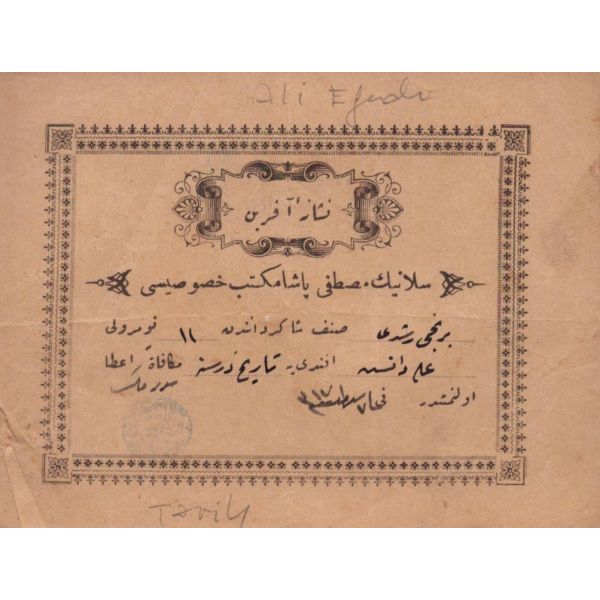 Ali Efendi
نشانهٔ آفرین
سلانیك مصطفی پاشا مكتب خصوصیسی
برنجی رشدی صنف شاكردانندن ١١ نومرولی
علی افندی یه تاریخ درسنه مكافاة اعطا
اولنمشدر
Tarih